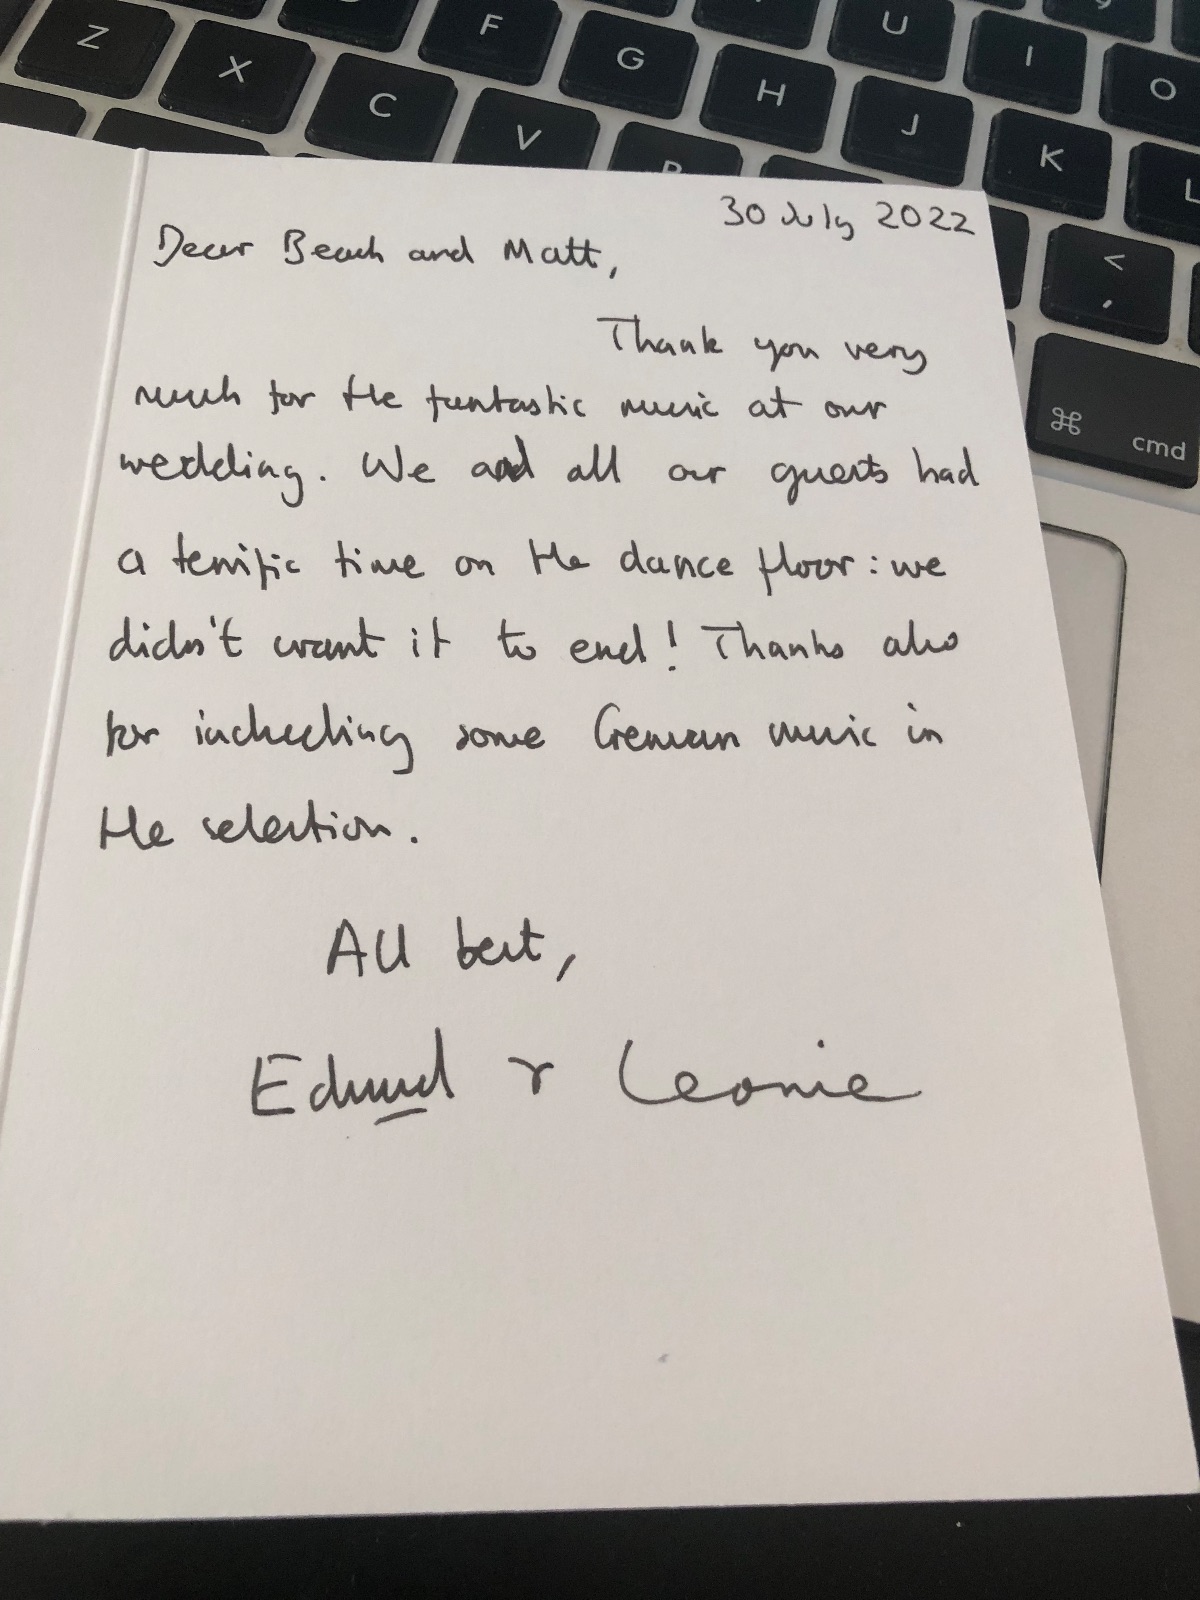 Z X C V F G H J K L U I O
< ,
⌘ cmd
30 July 2022
Dear Beach and Matt,
Thank you very
much for the fantastic music at our
wedding. We and all our guests had
a terrific time on the dance floor: we
didn't want it to end! Thanks also
for including some German music in
the selection.
All best,
Edmund & Leonie